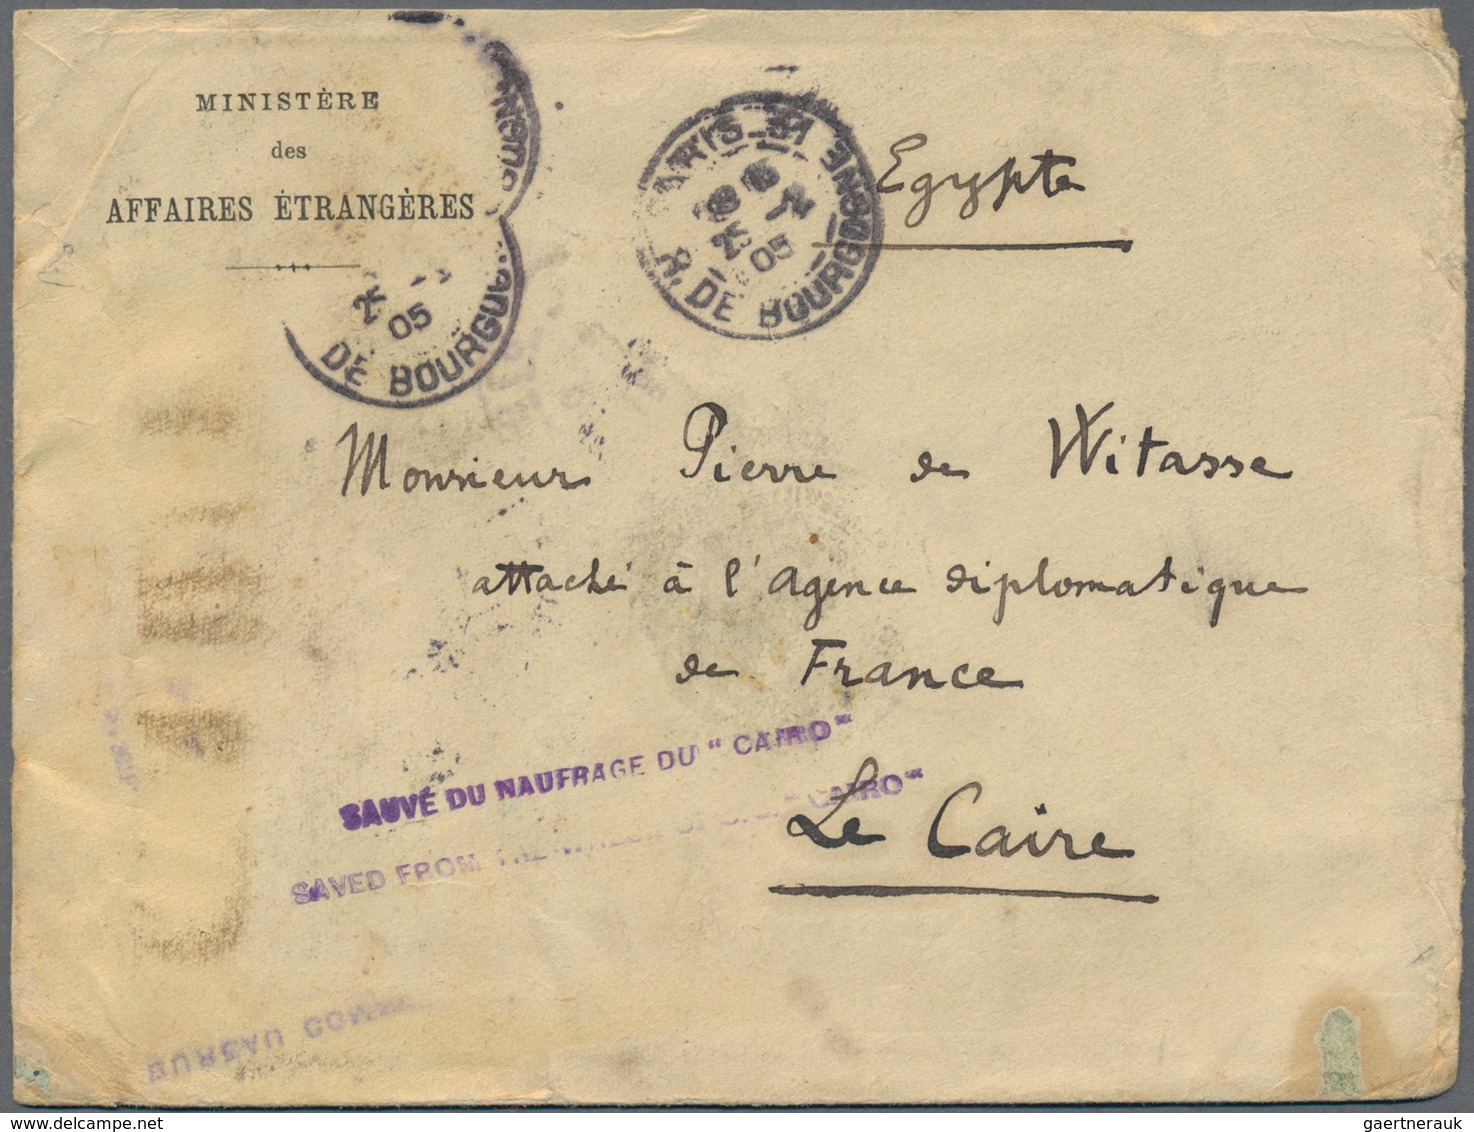 MINISTÈRE
des
AFFAIRES ÉTRANGÈRES
25
05
DE BOURGOGNE
PARIS
25
05
R. DE BOURGOGNE
Egypte
Monsieur Pierre de Witasse
attaché à l'Agence diplomatique
de France
Le Caire
SAUVÉ DU NAUFRAGE DU "CAIRO"
SAVED FROM THE WRECK OF S.S. "CAIRO"
BUREAU
gaertnerauk